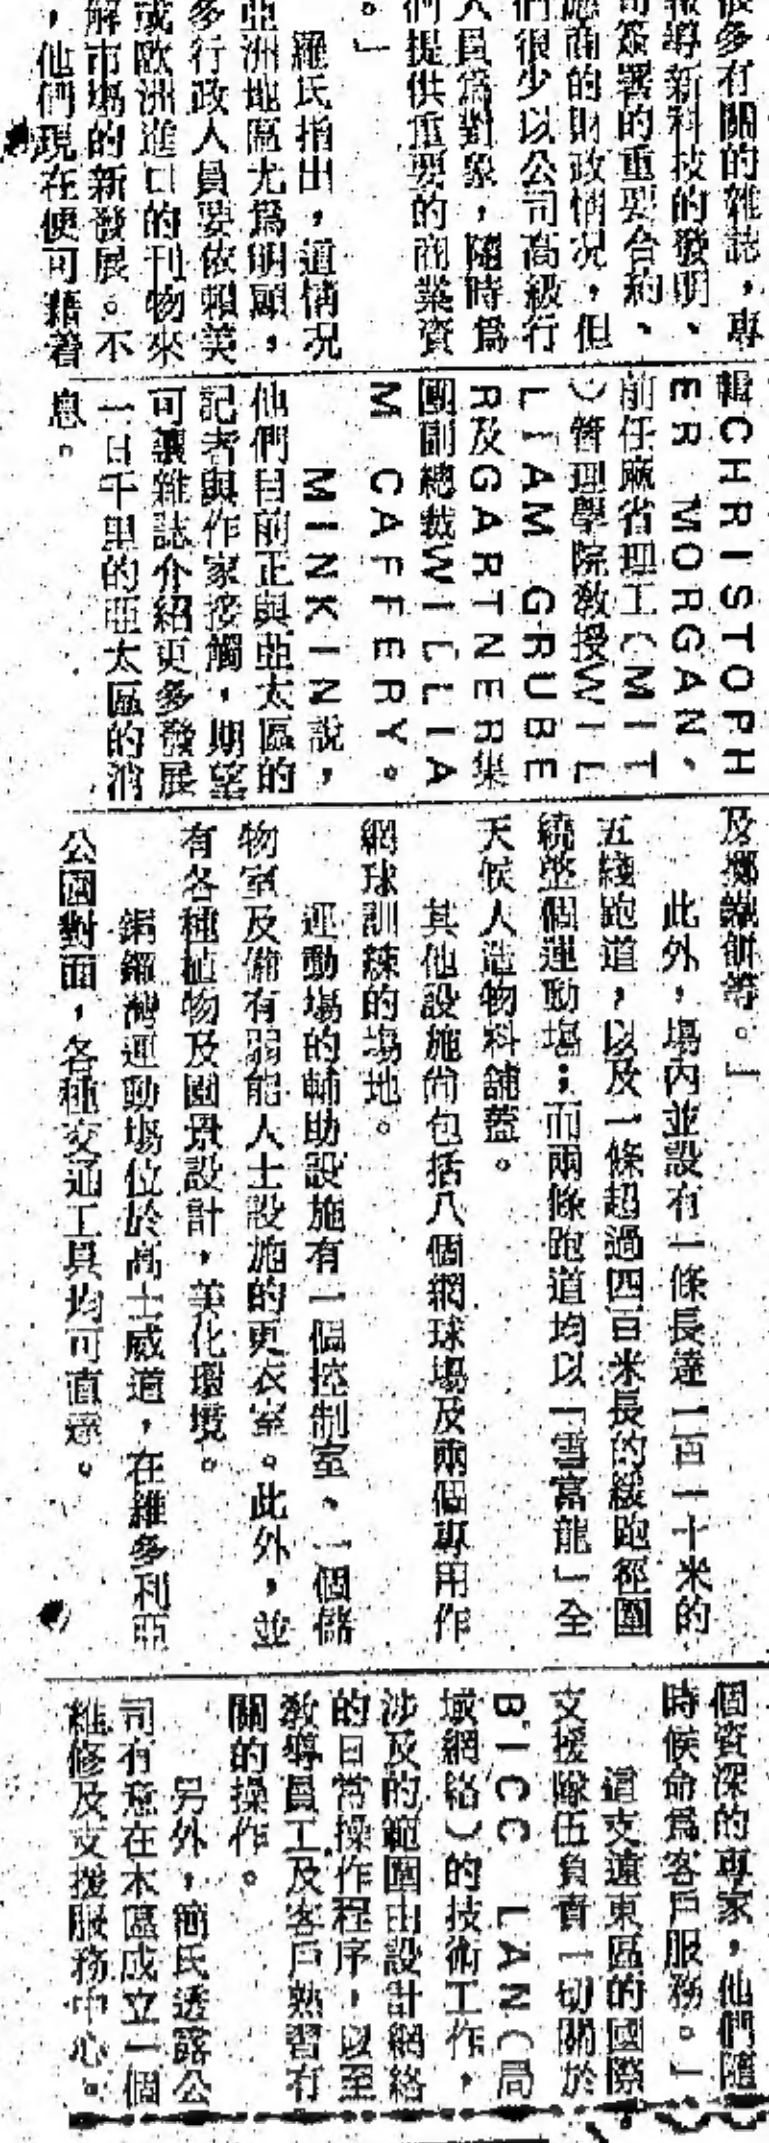 很多有關的雜誌，專
報導新科技的發明、
司簽署的重要合約、
應商的財政情况，但
們很少以公司高級行
人員爲對象，隨時爲
們提供重要的商業資
。」
羅氏指出，這情况
亞洲地區尤爲明顯，
多行政人員要依賴美
或歐洲進口的刊物來
解市場的新發展。不
，他們現在便可藉着
輯CHRISTOPH
ER MORGAN、
前任麻省理工（MIT
）管理學院教授WIL
LIAM GRUBE
R及GARTNER集
團副總裁WILLIA
M CAFFERY。
MINKIN說，
他們目前正與亞太區的
記者與作家接觸，期望
可讓雜誌介紹更多發展
一日千里的亞太區的消
息。
及擲鐵餅等。」
此外，場內並設有一條長達一百一十米的
五綫跑道，以及一條超過四百米長的緩跑徑圍
繞整個運動場；而兩條跑道均以「雪當龍」全
天候人造物料舖蓋。
其他設施尚包括八個網球場及兩個專用作
網球訓練的場地。
運動場的輔助設施有一個控制室、一個儲
物室及備有弱能人士設施的更衣室。此外，並
有各種植物及園景設計，美化環境。
銅鑼灣運動場位於高士威道，在維多利亞
公園對面，各種交通工具均可直達。
個資深的專家，他們隨
時候命爲客戶服務。」
這支遠東區的國際
支援隊伍負責一切關於
BICC LAN（局
域網絡）的技術工作，
涉及的範圍由設計網絡
的日常操作程序，以至
教導員工及客戶熟習有
關的操作。
另外，簡氏透露公
司有意在本區成立一個
維修及支援服務中心。